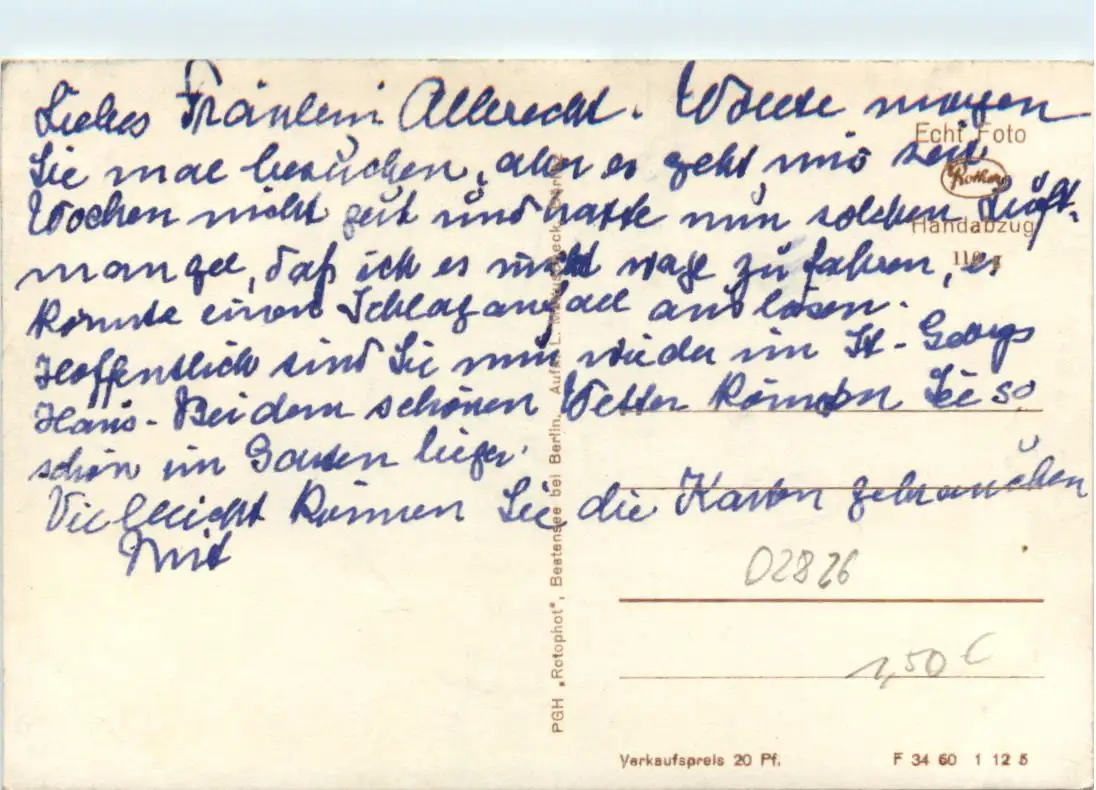 Liebes Fräulein Albrecht. Wollte morgen
Sie mal besuchen, aber es geht mir seit
Wochen nicht gut und hatte nun solchen Luft-
mangel, daß ich es nicht wage zu fahren, es
könnte einen Schlaganfall auslösen.
Hoffentlich sind Sie nun wieder im St-Georgs
Haus. Bei dem schönen Wetter können Sie so
schön im Garten liegen.
Vielleicht können Sie die Karten gebrauchen
Mit
Echt Foto
Rotherm
Handabzug
110
PGH „Rotophot", Bestensee bei Berlin. Aufn. L.
02826
1,50 €
Verkaufspreis 20 Pf.
F 34 60 1 12 5